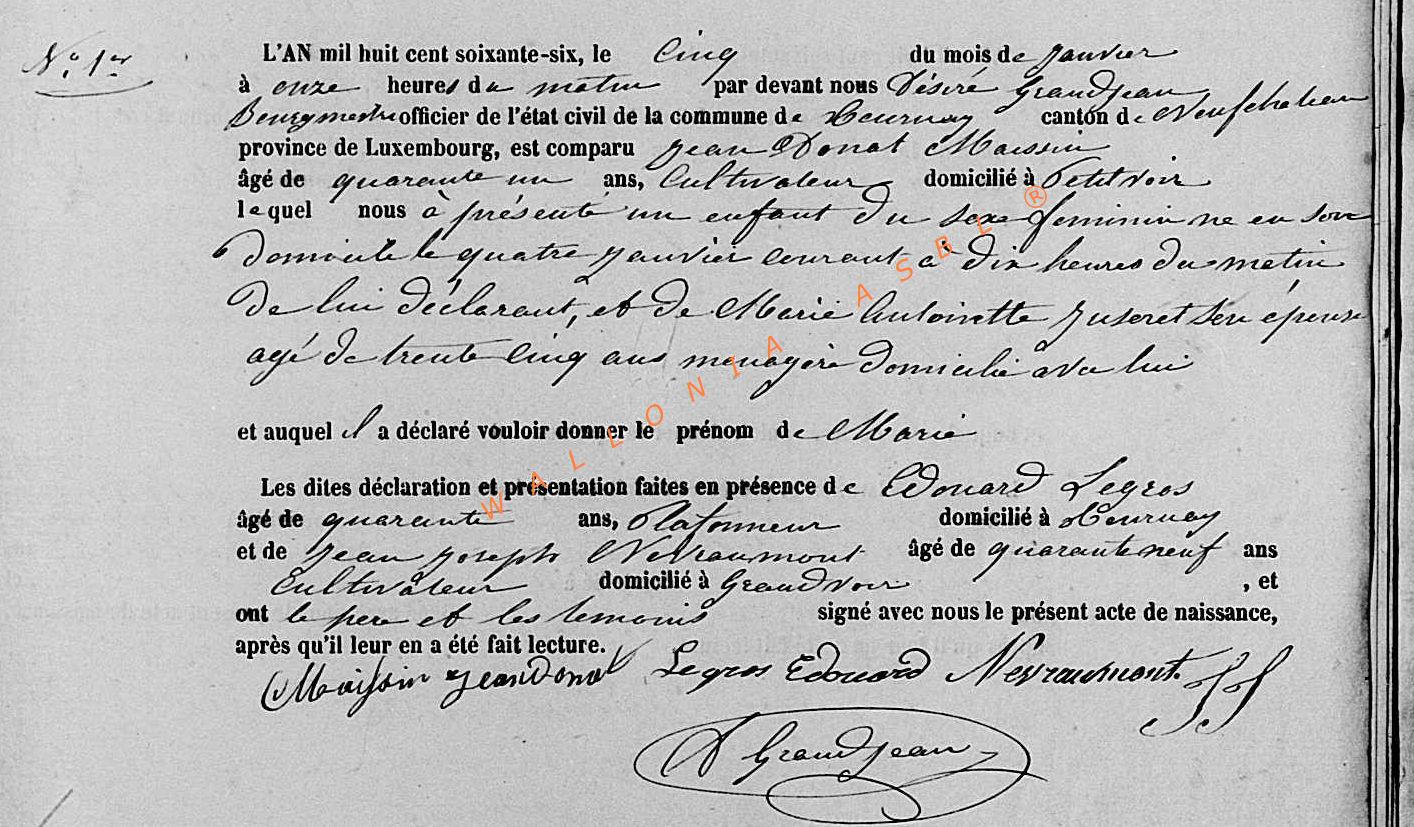 N.° 1er
L'AN mil huit cent soixante-six, le Cinq du mois de Janvier
à onze heures du matin par devant nous Désiré Grandjean
Bourgmestre officier de l'état civil de la commune de Tournay canton de Neufchateau
province de Luxembourg, est comparu Jean Donat Maissin
âgé de quarante un ans, Cultivateur domicilié à Petitvoir
lequel nous à présenté un enfant du sexe feminin né en son
domicile le quatre Janvier courant à dix heures du matin
de lui déclarant, et de Marie Antoinette Juseret son épouse
agé de trente cinq ans menagère domicilié avec lui
et auquel il a déclaré vouloir donner le prénom de Marie
Les dites déclaration et présentation faites en présence de Edouard Legros
âgé de quarante ans, Plafonneur domicilié à Tournay
et de Jean Joseph Nevraumont âgé de quarante neuf ans
Cultivateur domicilié à Grandvoir , et
ont le pere et les temoins signé avec nous le présent acte de naissance,
après qu'il leur en a été fait lecture.
Maissin Jean Donat Legros Edouard Nevraumont JJ
D Grandjean
WALLONIA ASBL ®